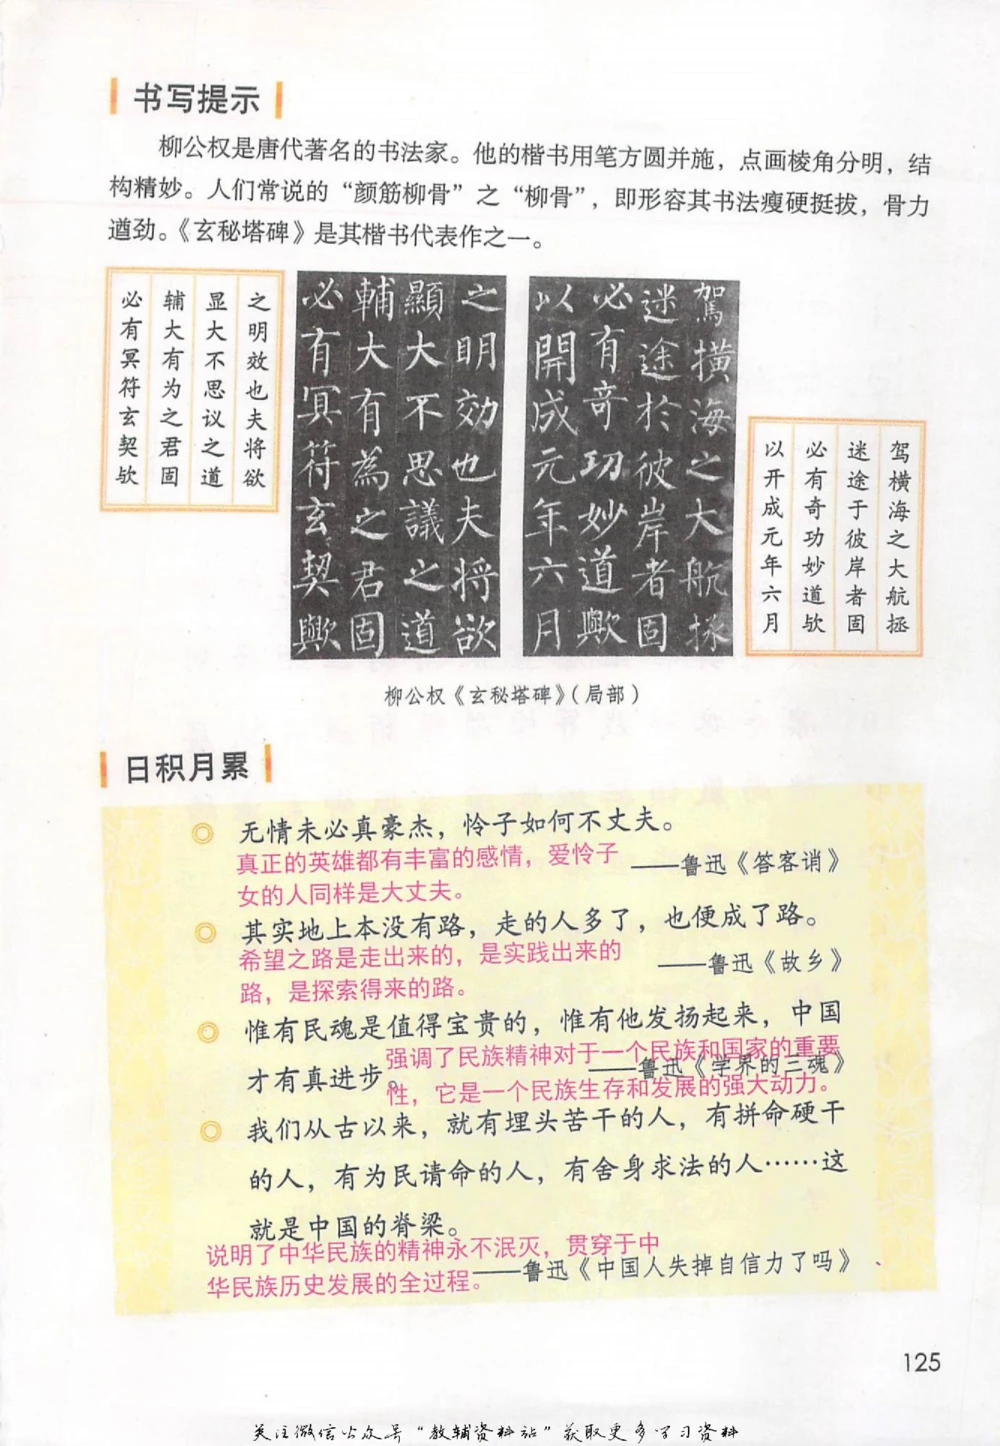 书写提示
柳公权是唐代著名的书法家。他的楷书用笔方圆并施，点画棱角分明，结
构精妙。人们常说的“颜筋柳骨”之“柳骨”，即形容其书法瘦硬挺拔，骨力
遒劲。《玄秘塔碑》是其楷书代表作之一。
之明效也夫将欲
显大不思议之道
辅大有为之君固
必有冥符玄契欤
之明効也夫将欲
顯大不思議之道
輔大有為之君固
必有冥符玄契歟
駕橫海之大航拯
迷途於彼岸者固
必有奇功妙道歟
以開成元年六月
驾横海之大航拯
迷途于彼岸者固
必有奇功妙道欤
以开成元年六月
柳公权《玄秘塔碑》（局部）
日积月累
无情未必真豪杰，怜子如何不丈夫。
真正的英雄都有丰富的感情，爱怜子
女的人同样是大丈夫。
——鲁迅《答客诮》
其实地上本没有路，走的人多了，也便成了路。
希望之路是走出来的，是实践出来的
路，是探索得来的路。
——鲁迅《故乡》
惟有民魂是值得宝贵的，惟有他发扬起来，中国
才有真进步。
强调了民族精神对于一个民族和国家的重要
性，它是一个民族生存和发展的强大动力。
——鲁迅《学界的三魂》
我们从古以来，就有埋头苦干的人，有拼命硬干
的人，有为民请命的人，有舍身求法的人……这
就是中国的脊梁。
说明了中华民族的精神永不泯灭，贯穿于中
华民族历史发展的全过程。
——鲁迅《中国人失掉自信力了吗》
125
关注微信公众号“教辅资料站”获取更多学习资料